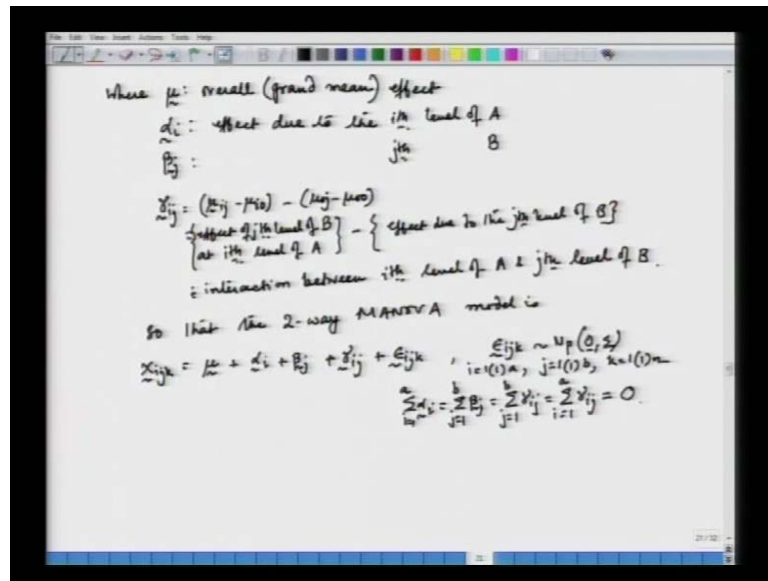 File Edit View Insert Actions Tools Help
where μ̰: overall (grand mean) effect
α̰i : effect due to the ith level of A
β̰j : jth B
γ̰ij = (μ̰ij - μi0) - (μ0j - μ00)
= {effect of jth level of B at ith level of A} - {effect due to the jth level of B}
: interaction between ith level of A & jth level of B.
So that the 2-way MANOVA model is
x̰ijk = μ̰ + α̰i + β̰j + γ̰ij + ε̰ijk , ε̰ijk ~ Np(0, Σ)
i=1(1)a, j=1(1)b, k=1(1)n
∑_{i=1}^{a} α̰i = ∑_{j=1}^{b} β̰j = ∑_{j=1}^{b} γ̰ij = ∑_{i=1}^{a} γ̰ij = 0.
21/32